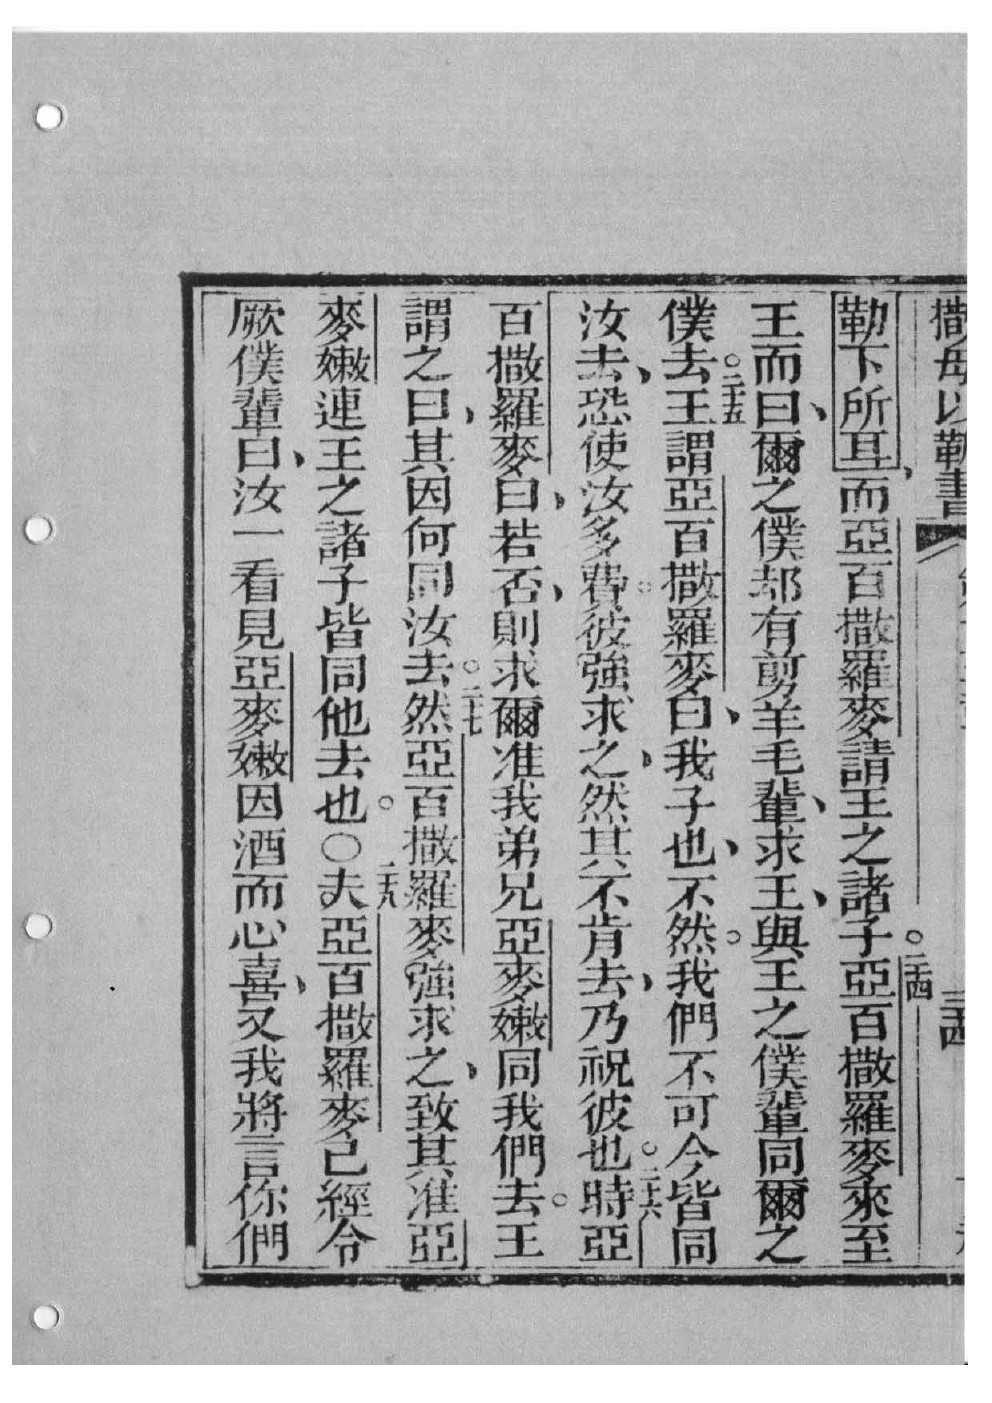 撒母以勒書
勒下所耳而亞百撒羅麥請王之諸子。二十四亞百撒羅麥來至
王而曰爾之僕却有剪羊毛輩求王與王之僕輩同爾之
僕去。二十五王謂亞百撒羅麥曰我子也不然。我們不可今皆同
汝去恐使汝多費。彼強求之然其不肯去乃祝彼也。二十六時亞
百撒羅麥曰若否則求爾准我弟兄亞麥嫩同我們去。王
謂之曰其因何同汝去。二十七然亞百撒羅麥強求之致其准亞
麥嫩連王之諸子皆同他去也。○二十八夫亞百撒羅麥已經令
厥僕輩曰汝一看見亞麥嫩因酒而心喜又我將言你們